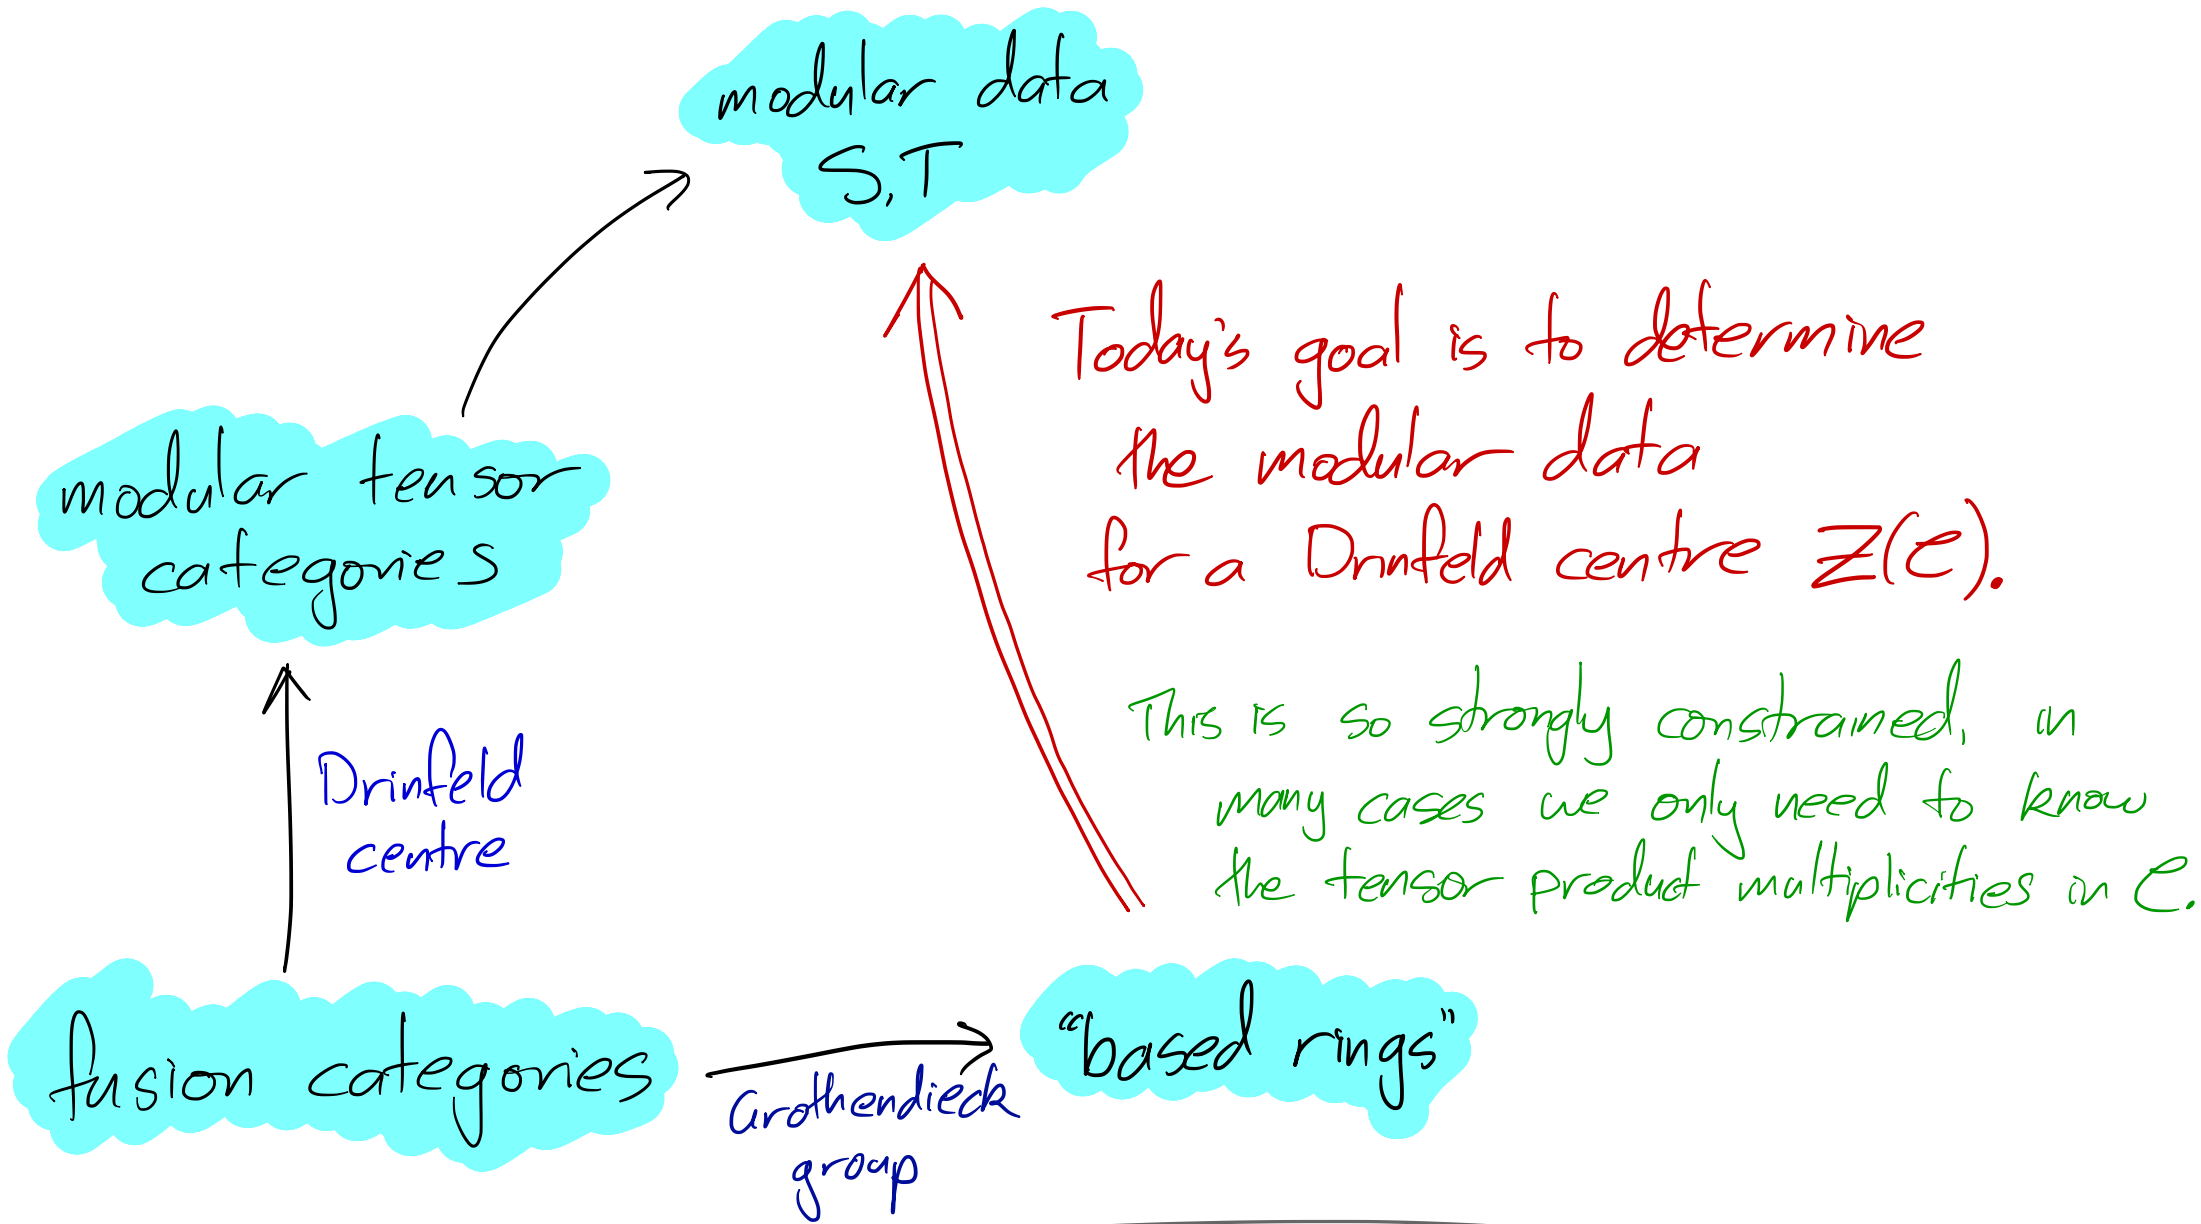 modular data
S, T
Today's goal is to determine
the modular data
for a Drinfeld centre Z(C).
modular tensor
categories
This is so strongly constrained, in
many cases we only need to know
the tensor product multiplicities in C.
Drinfeld
centre
fusion categories
Grothendieck
group
"based rings"